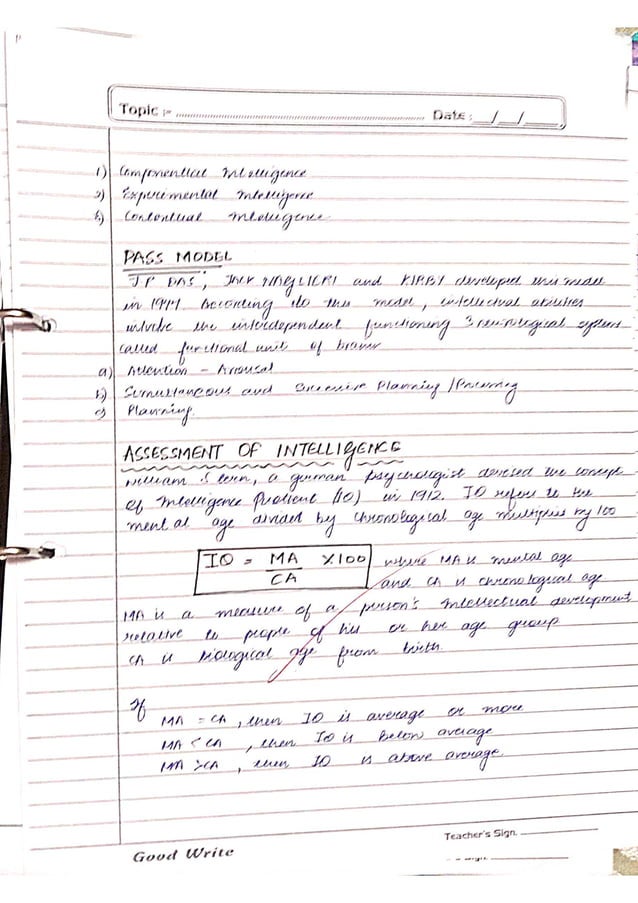 Topic :- Date : __/__/__
1) Componential Intelligence
2) Experimental Intelligence
3) Contextual Intelligence
PASS MODEL
J.P DAS, JACK NAGLIERI and KIRBY developed this model
in 1994. According to this model, intellectual abilities
involve the interdependent functioning 3 neurological system
called functional unit of brain
a) Attention - Arousal
b) Simultaneous and Successive Planning / Processing
c) Planning.
ASSESSMENT OF INTELLIGENCE
William Stern, a german psychologist devised the concept
of Intelligence Quotient (IQ) in 1912. IQ refers to the
mental age divided by chronological age multiplied by 100
IQ = MA X100 where MA is mental age
CA and CA is chronological age
MA is a measure of a person's intellectual development
relative to people of his or her age group
CA is biological age from birth.
If
MA = CA, then IQ is average or more
MA < CA, then IQ is below average
MA > CA, then IQ is above average
Teacher's Sign.
Good Write